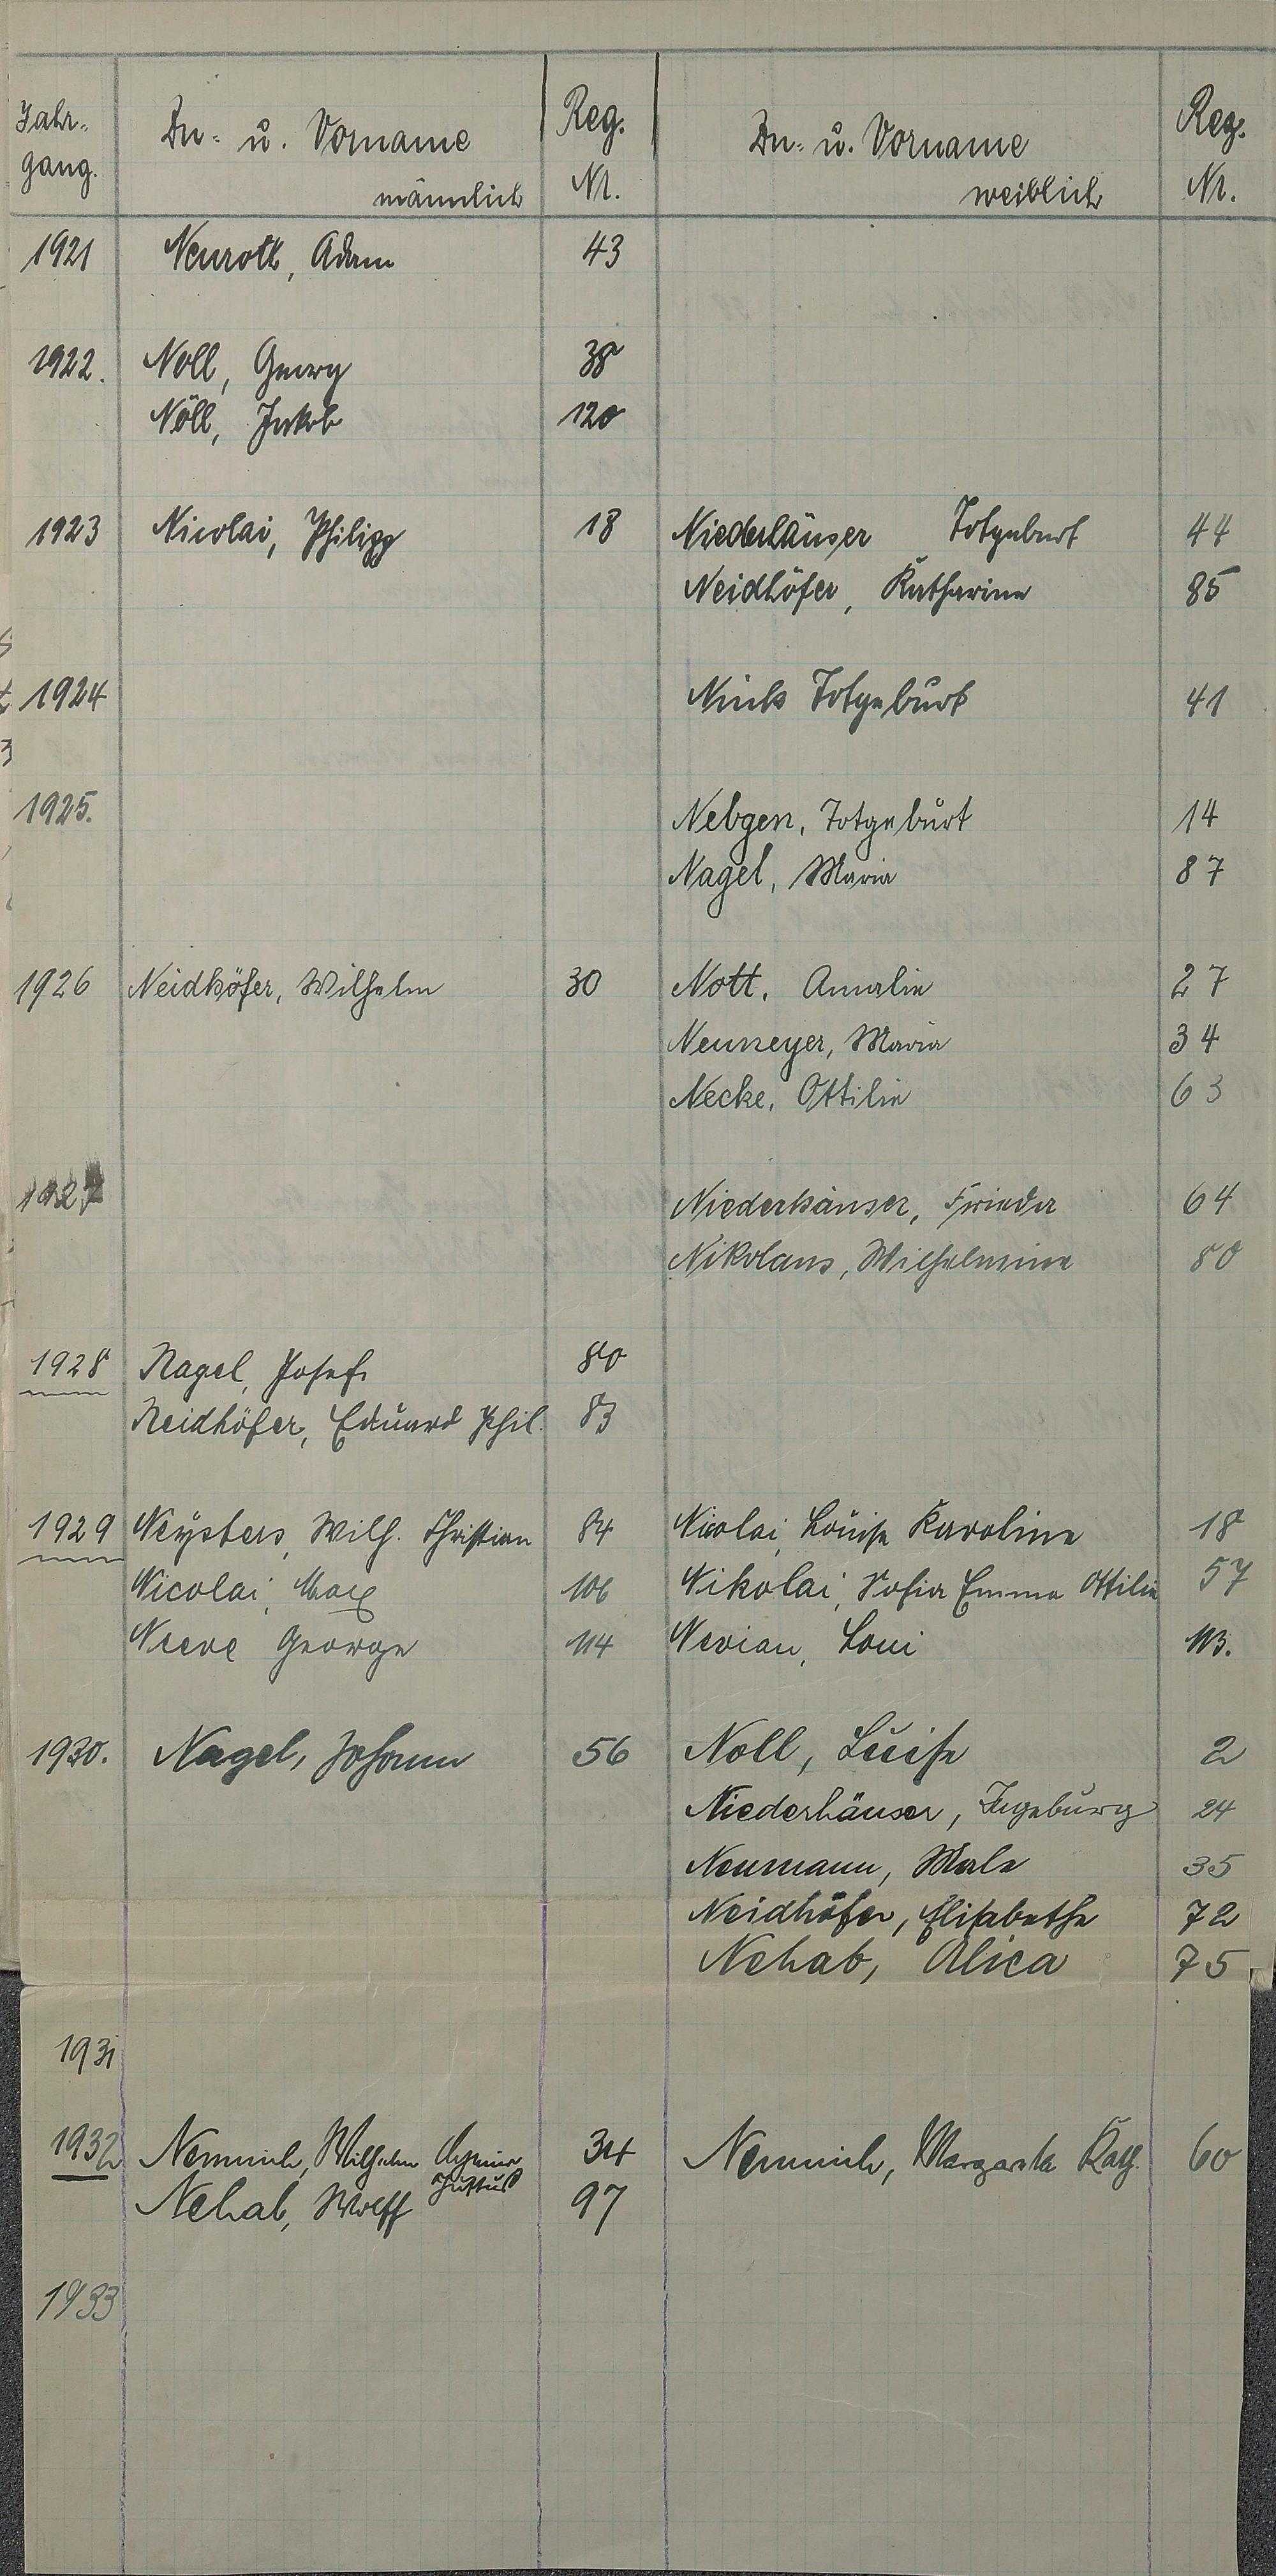 Jahr-
gang.
Zu- u. Vorname
männlich
Reg.
Nr.
Zu- u. Vorname
weiblich
Reg.
Nr.
1921 Neuroth, Adam 43
1922. Noll, Georg 38
Nöll, Jakob 120
1923 Nicolai, Philipp 18 Niederhäuser Totgeburt 44
Neidhöfer, Katharina 85
1924 Nink Totgeburt 41
1925. Nebgen, Totgeburt 14
Nagel, Maria 87
1926 Neidhöfer, Wilhelm 30 Nott, Amalie 27
Neumeyer, Maria 34
Necke, Ottilie 63
1927 Niederhäuser, Frieda 64
Nikolaus, Wilhelmine 80
1928 Nagel, Josef. 80
Neidhöfer, Eduard Phil. 83
1929 Neysters, Wilh. Christian 84 Nicolai, Louise Karoline 18
Nicolai, Max 106 Nikolai, Sofia Emma Ottilie 57
Neeve George 114 Nevian, Loni 113.
1930. Nagel, Johann 56 Noll, Luise 2
Niederhäuser, Ingeburg 24
Neumann, 35
Neidhöfer, Elisabethe 72
Nehab, Alica 75
1931
1932 Nemnich, Wilhelm 34 Nemnich, Margareta Kath. 60
Justus
Nehab, Wolff 97
1933